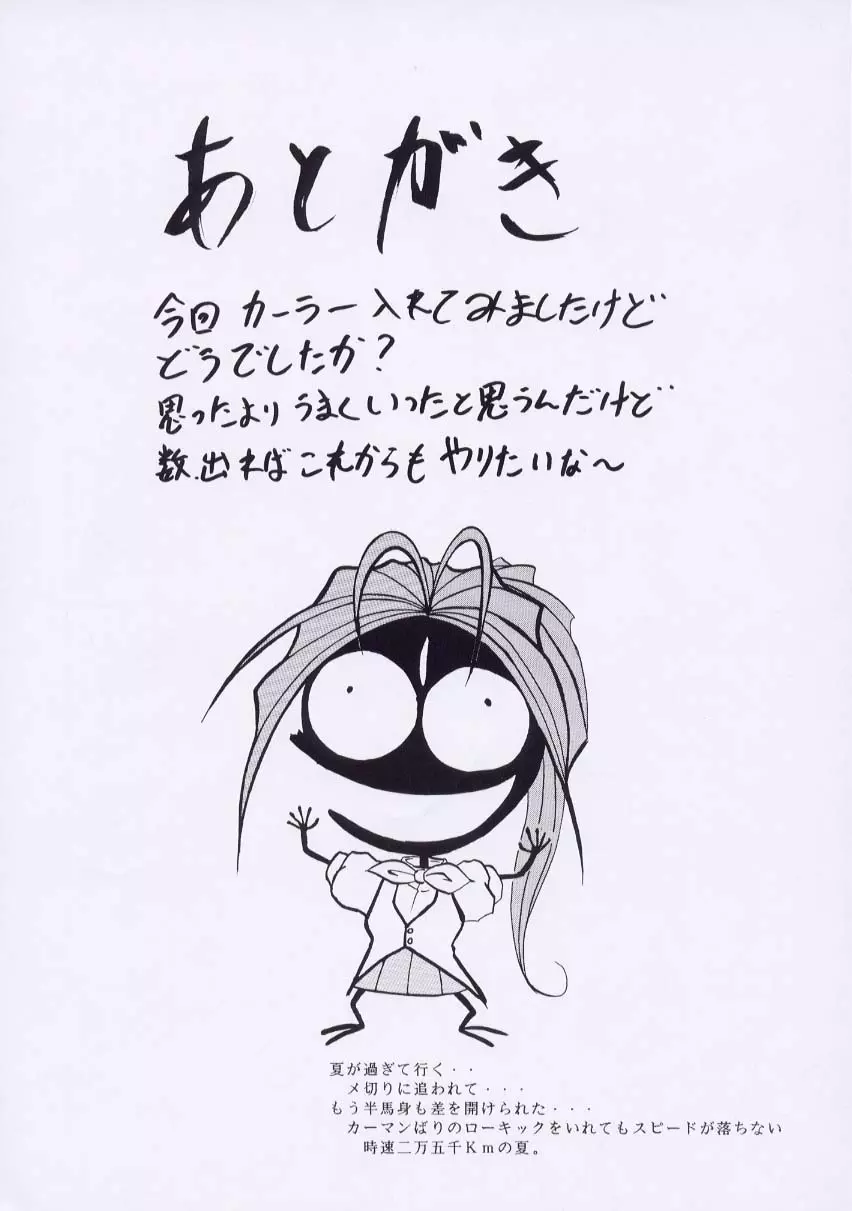 あとがき
今回 カーラー入れてみましたけど
どうでしたか?
思ったより うまくいったと思うんだけど
数出ればこれからも やりたいな〜
夏が過ぎて行く・・
メ切りに追われて・・・
もう半馬身も差を開けられた・・・
カーマンばりのローキックをいれてもスピードが落ちない
時速二万五千Kmの夏。